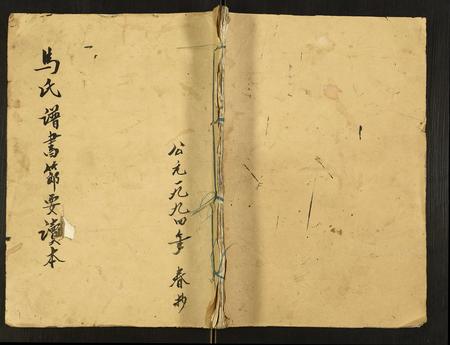 馬氏譜書節要讀本
公元一九九四年 春抄